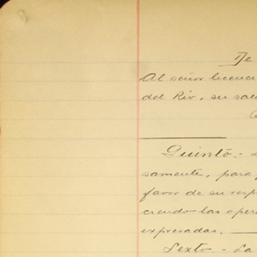 De
Al señor licenci
del Río, su salu
Quinto.-
samente, para
favor de su resp
ciendo las oper
expresadas.
Sexto.- La